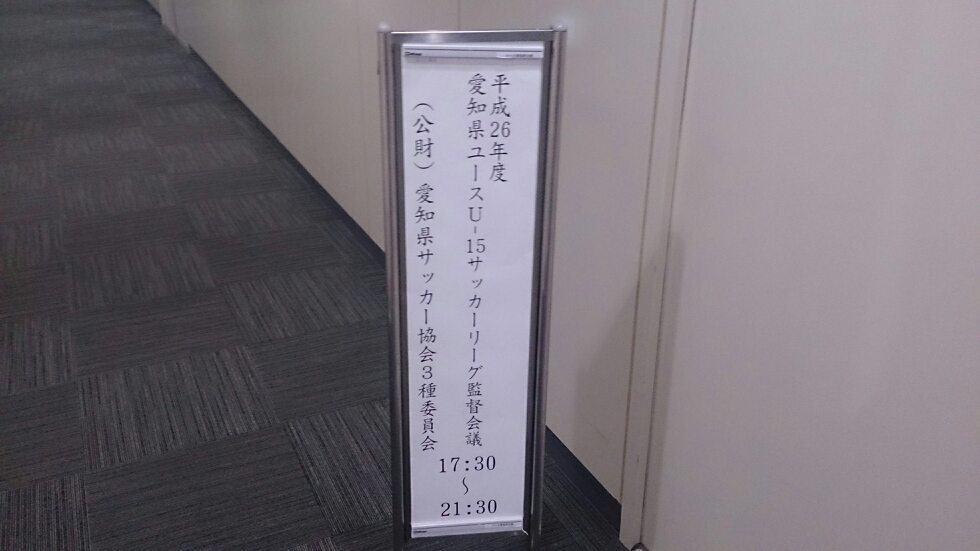 平成26年度
愛知県ユースU-15サッカーリーグ監督会議
（公財）愛知県サッカー協会3種委員会
17:30
〜
21:30